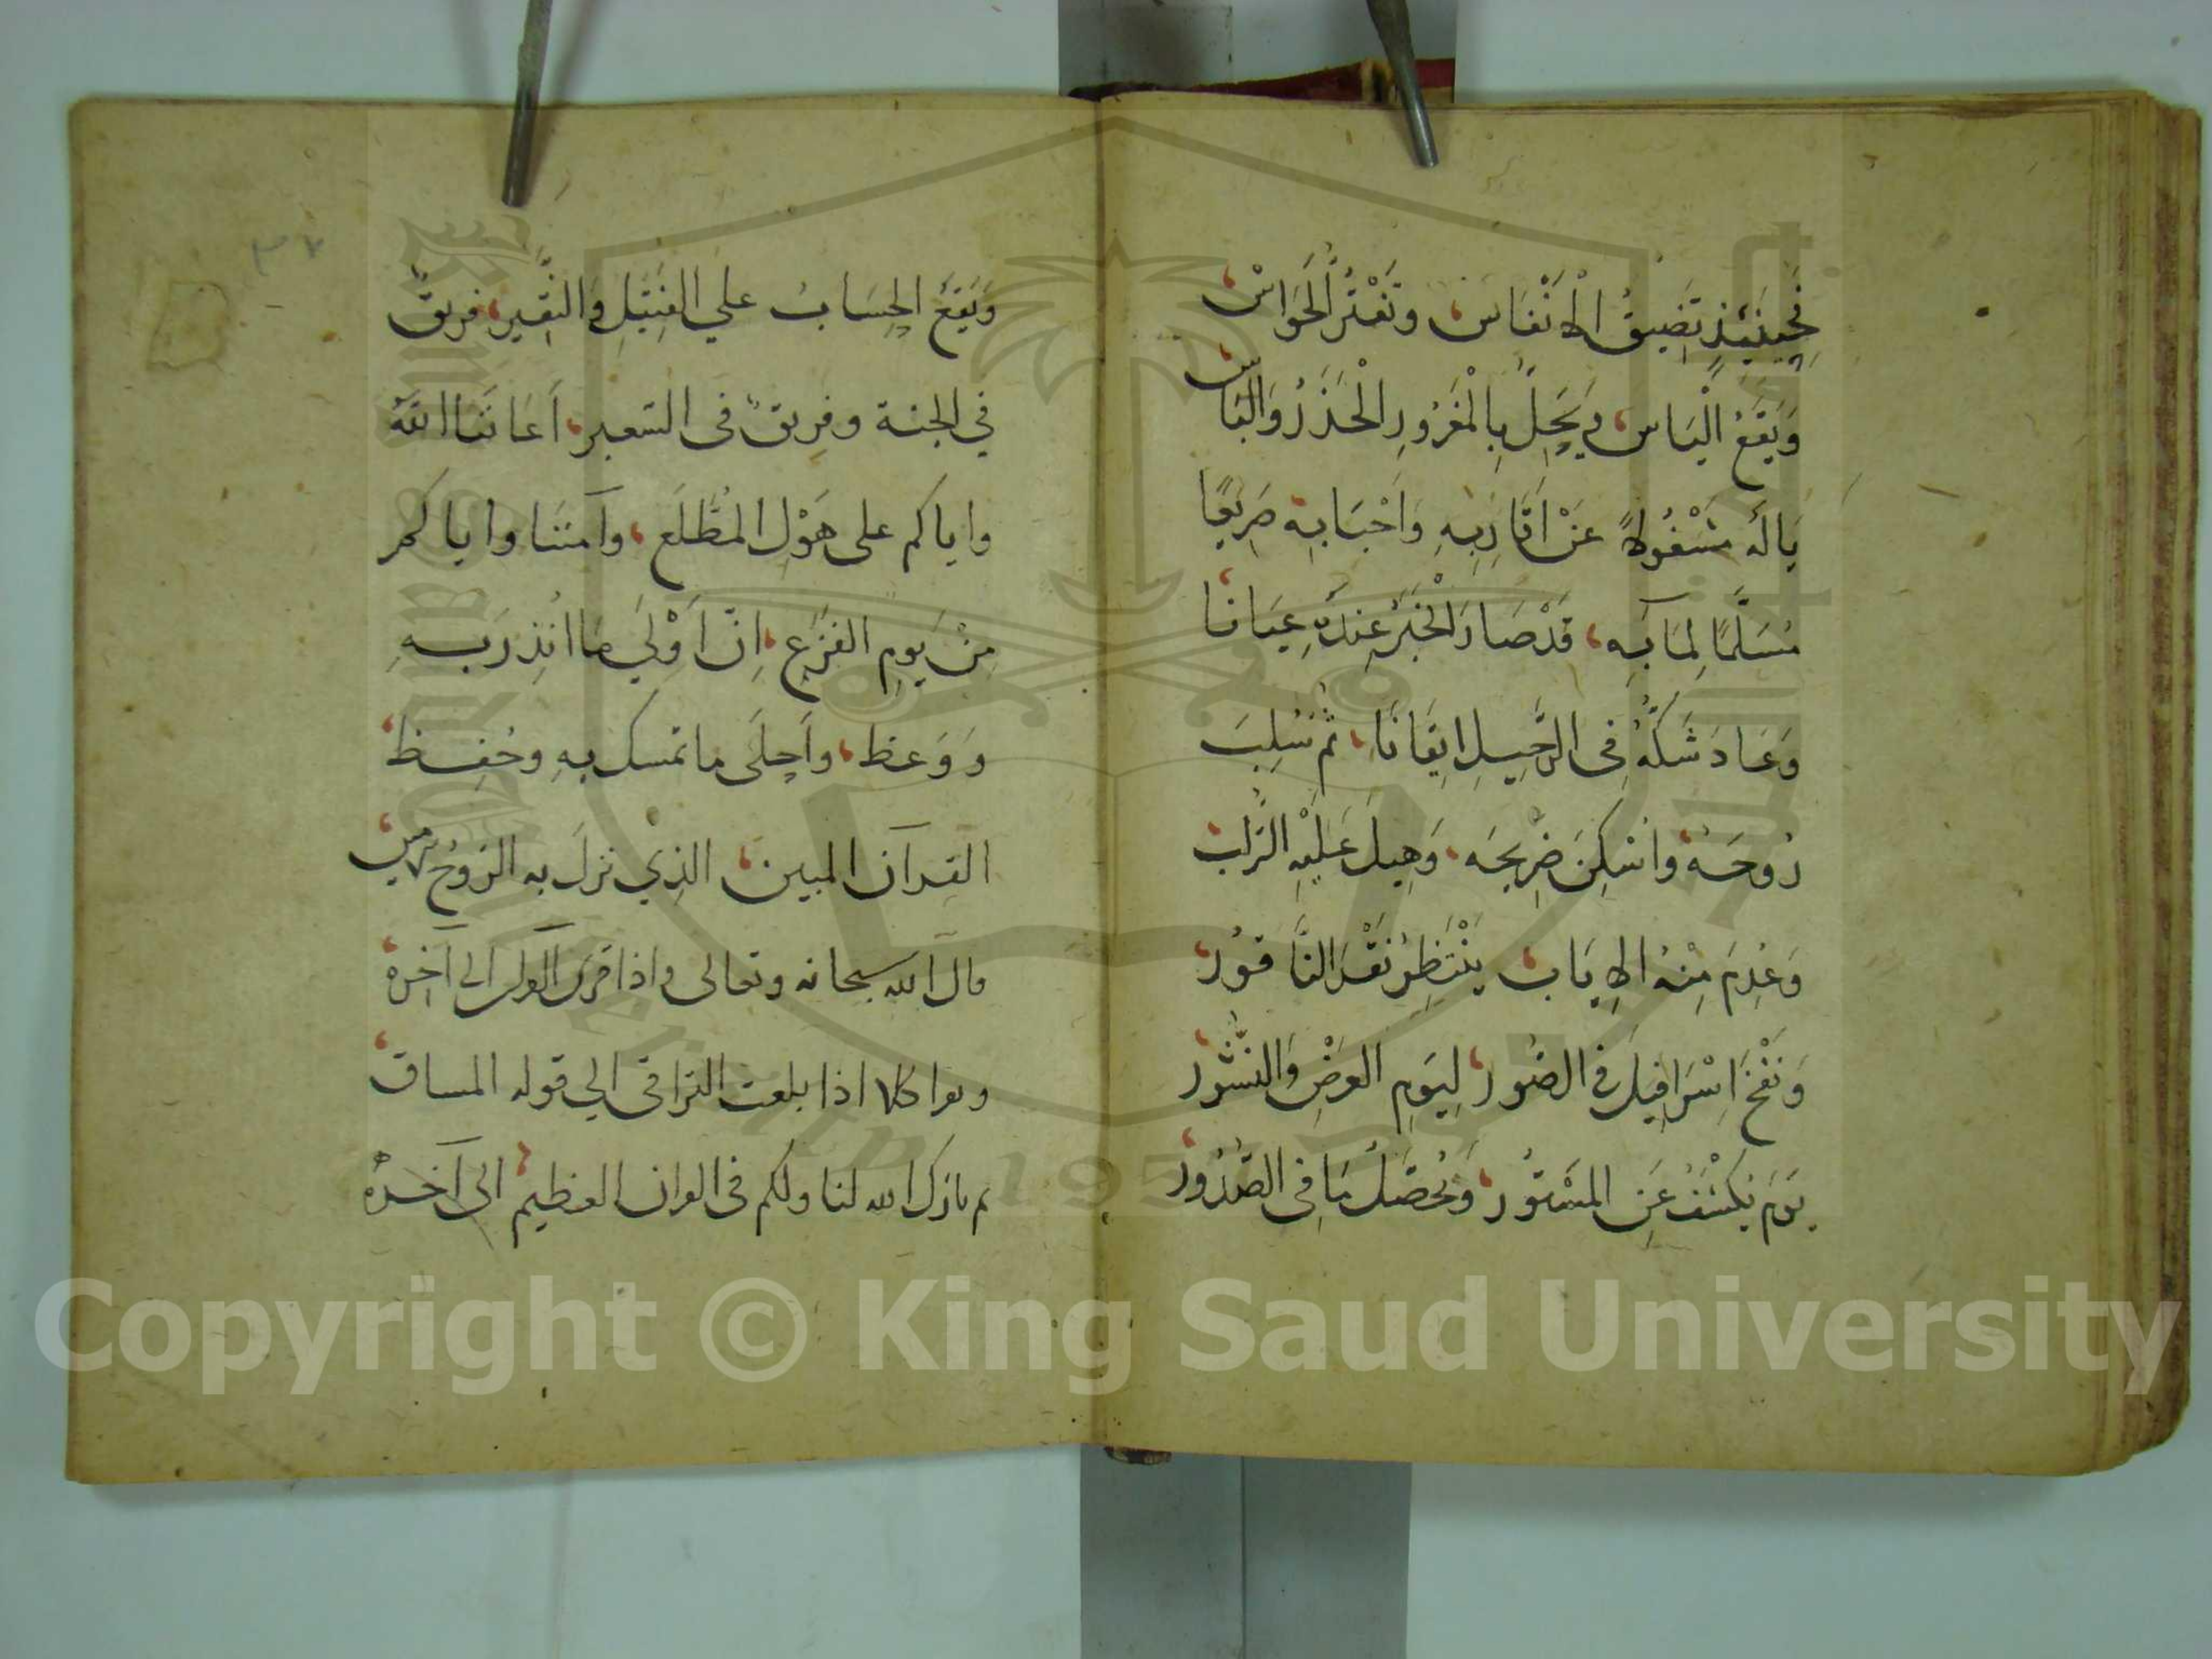 فَحِينَئِذٍ تَضِيقُ الْاَنْفَاسُ وَتَفْتُرُ الْحَوَاسْ
وَيَقَعُ الْيَاسُ وَيَحِلُّ بِالْمَغْرُورِ الْحَذَرُ وَالْبَاسْ
يَالَهُ مَشْغُولاً عَنْ اَقَارِبِهِ وَاَحْبَابِهِ صَرِيعًا
مُسَلَّمًا لِمَآبِهِ قَدْ صَارَ الْخَبَرُ عِنْدَهُ عِيَانًا
وَعَادَ شَكُّهُ فِى الرَّحِيلِ اِيقَانًا ثم سُلِبَ
رُوحَهُ وَاُسْكِنَ ضَرِيحَه وَهِيلَ عَلَيْهِ التُّرَاب
وَعُدِمَ مِنْهُ الاِيَاب يَنْتَظِرُ نَقْرَ النَّاقُور
وَنَفْخَ اِسْرَافِيلَ فى الصُّور لِيَومِ العَرْضِ وَالنُّشُور
يَومَ يُكْشَفُ عَنِ المَسْتُور وَيُحَصَّلُ مَا فِى الصُّدُور
٣٧
وَيَقَعُ الحِسَابُ علي الفَتِيلِ وَالنَّقِير فريقٌ
في الجنة وفريقٌ فى السَّعير اَعَانَنَا اللهُ
واياكم على هَوْلِ المُطَّلَع وآمَنَنا واياكم
مِنْ يَومِ الفَزَعِ اِنَّ اَوْلَي مَا اُنذِرَ بِهِ
وَوَعظ واَجلَى ما تمسك بِهِ وحُفِظ
القرآن المبين الذِي نزلَ به الرُوحُ الامين
قال الله سبحانه وتعالى واذا قرئ القرآن الى آخره
كلا اذا بلغت التراقى الي قوله المساق
ثم بارك الله لنا ولكم فى القران العظيم الى آخره
Copyright © King Saud University